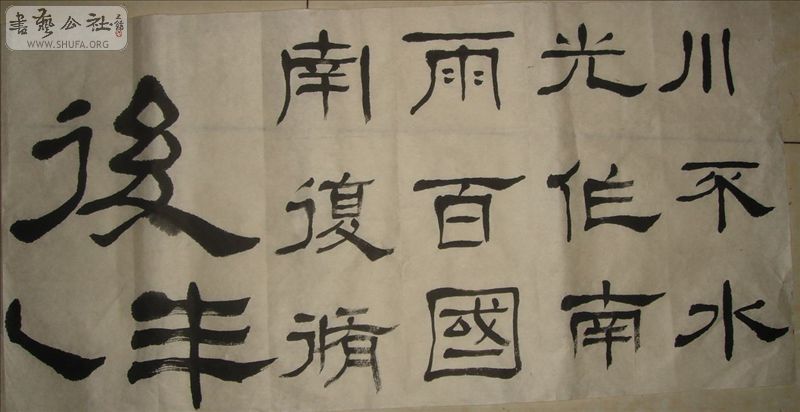 川不水
光作南
雨百國
南復脩
後年
書藝公社
WWW.SHUFA.ORG